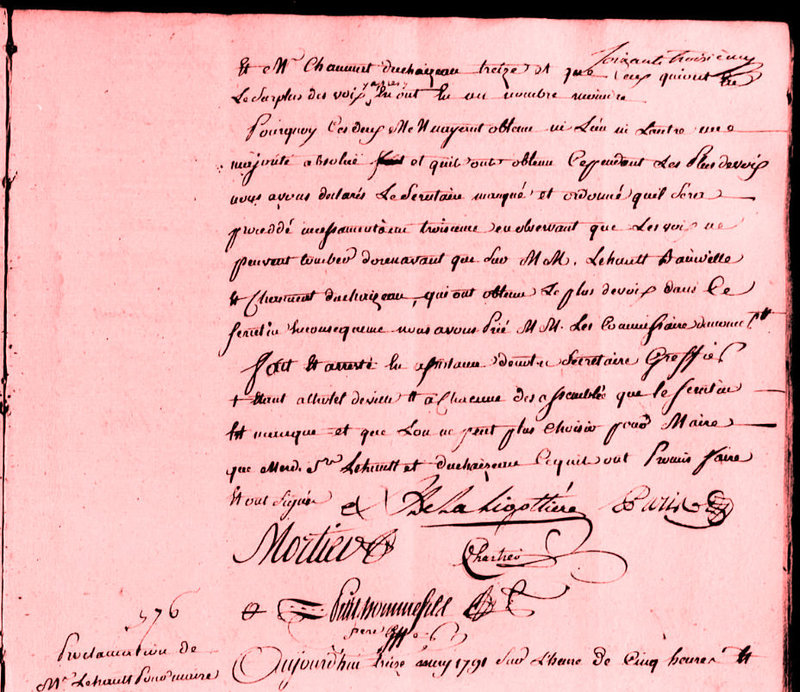 Soixante troisieme
Et Mr Chaumet duchaizeau treize et que ceux qui ont
Le surplus des voix en ont Eu un nombre moindre
Pourquoy Ces deux MM nayant obtenu ni Lun ni Lautre une
majorité absolue et quils ont obtenu Cependant Les Plus de voix
nous avons declarés Le scrutaire manqué et ordonné quil sera
procedé incessament a un troisieme en observant que Les voix ne
peuvent tomber dorenavant que sur MM. Lehault Bainville
Et Chaument duchaizeau, qui ont obtenu Le plus de voix dans Ce
scrutin En consequence nous avons Prié MM. Les Commissaire
fait Et arresté En assistance de notre Secretaire Greffier
tant a lhotel de ville Et a Chacune des assemblée que le scrutin
Est manqué et que Lon ne peut plus choisir pour Maire
que Lehault et duchaizeau Ce quils ont Promis faire
Et ont Signé
De La Ligottiére Paris
Mortier Chartier
Petit homme fils
576
Proclamation de
Mr Lehault Pour maire
Aujourdhui treize 1791 Sur Lheure de Cinq heures Et